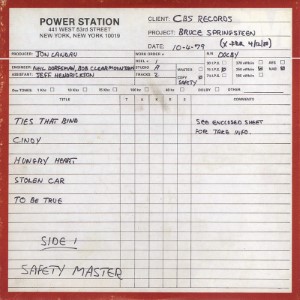 POWER STATION
441 WEST 53rd STREET
NEW YORK, NEW YORK 10019
CLIENT: CBS RECORDS
PROJECT: BRUCE SPRINGSTEEN
DATE: 10-4-79
PRODUCER: JON LANDAU
ENGINEER: NEIL DORFSMAN, BOB CLEARMOUNTAIN
ASSISTANT: JEFF HENDRICKSON
WORK ORDER #
REEL # 1
STUDIO A
TRACKS 2
MASTER
COPY
SAFETY
DOLBY
TITLE
COMMENTS
TIES THAT BIND
CINDY
HUNGRY HEART
STOLEN CAR
TO BE TRUE
SEE ENCLOSED SHEET
FOR TRKS INFO.
SIDE 1
SAFETY MASTER